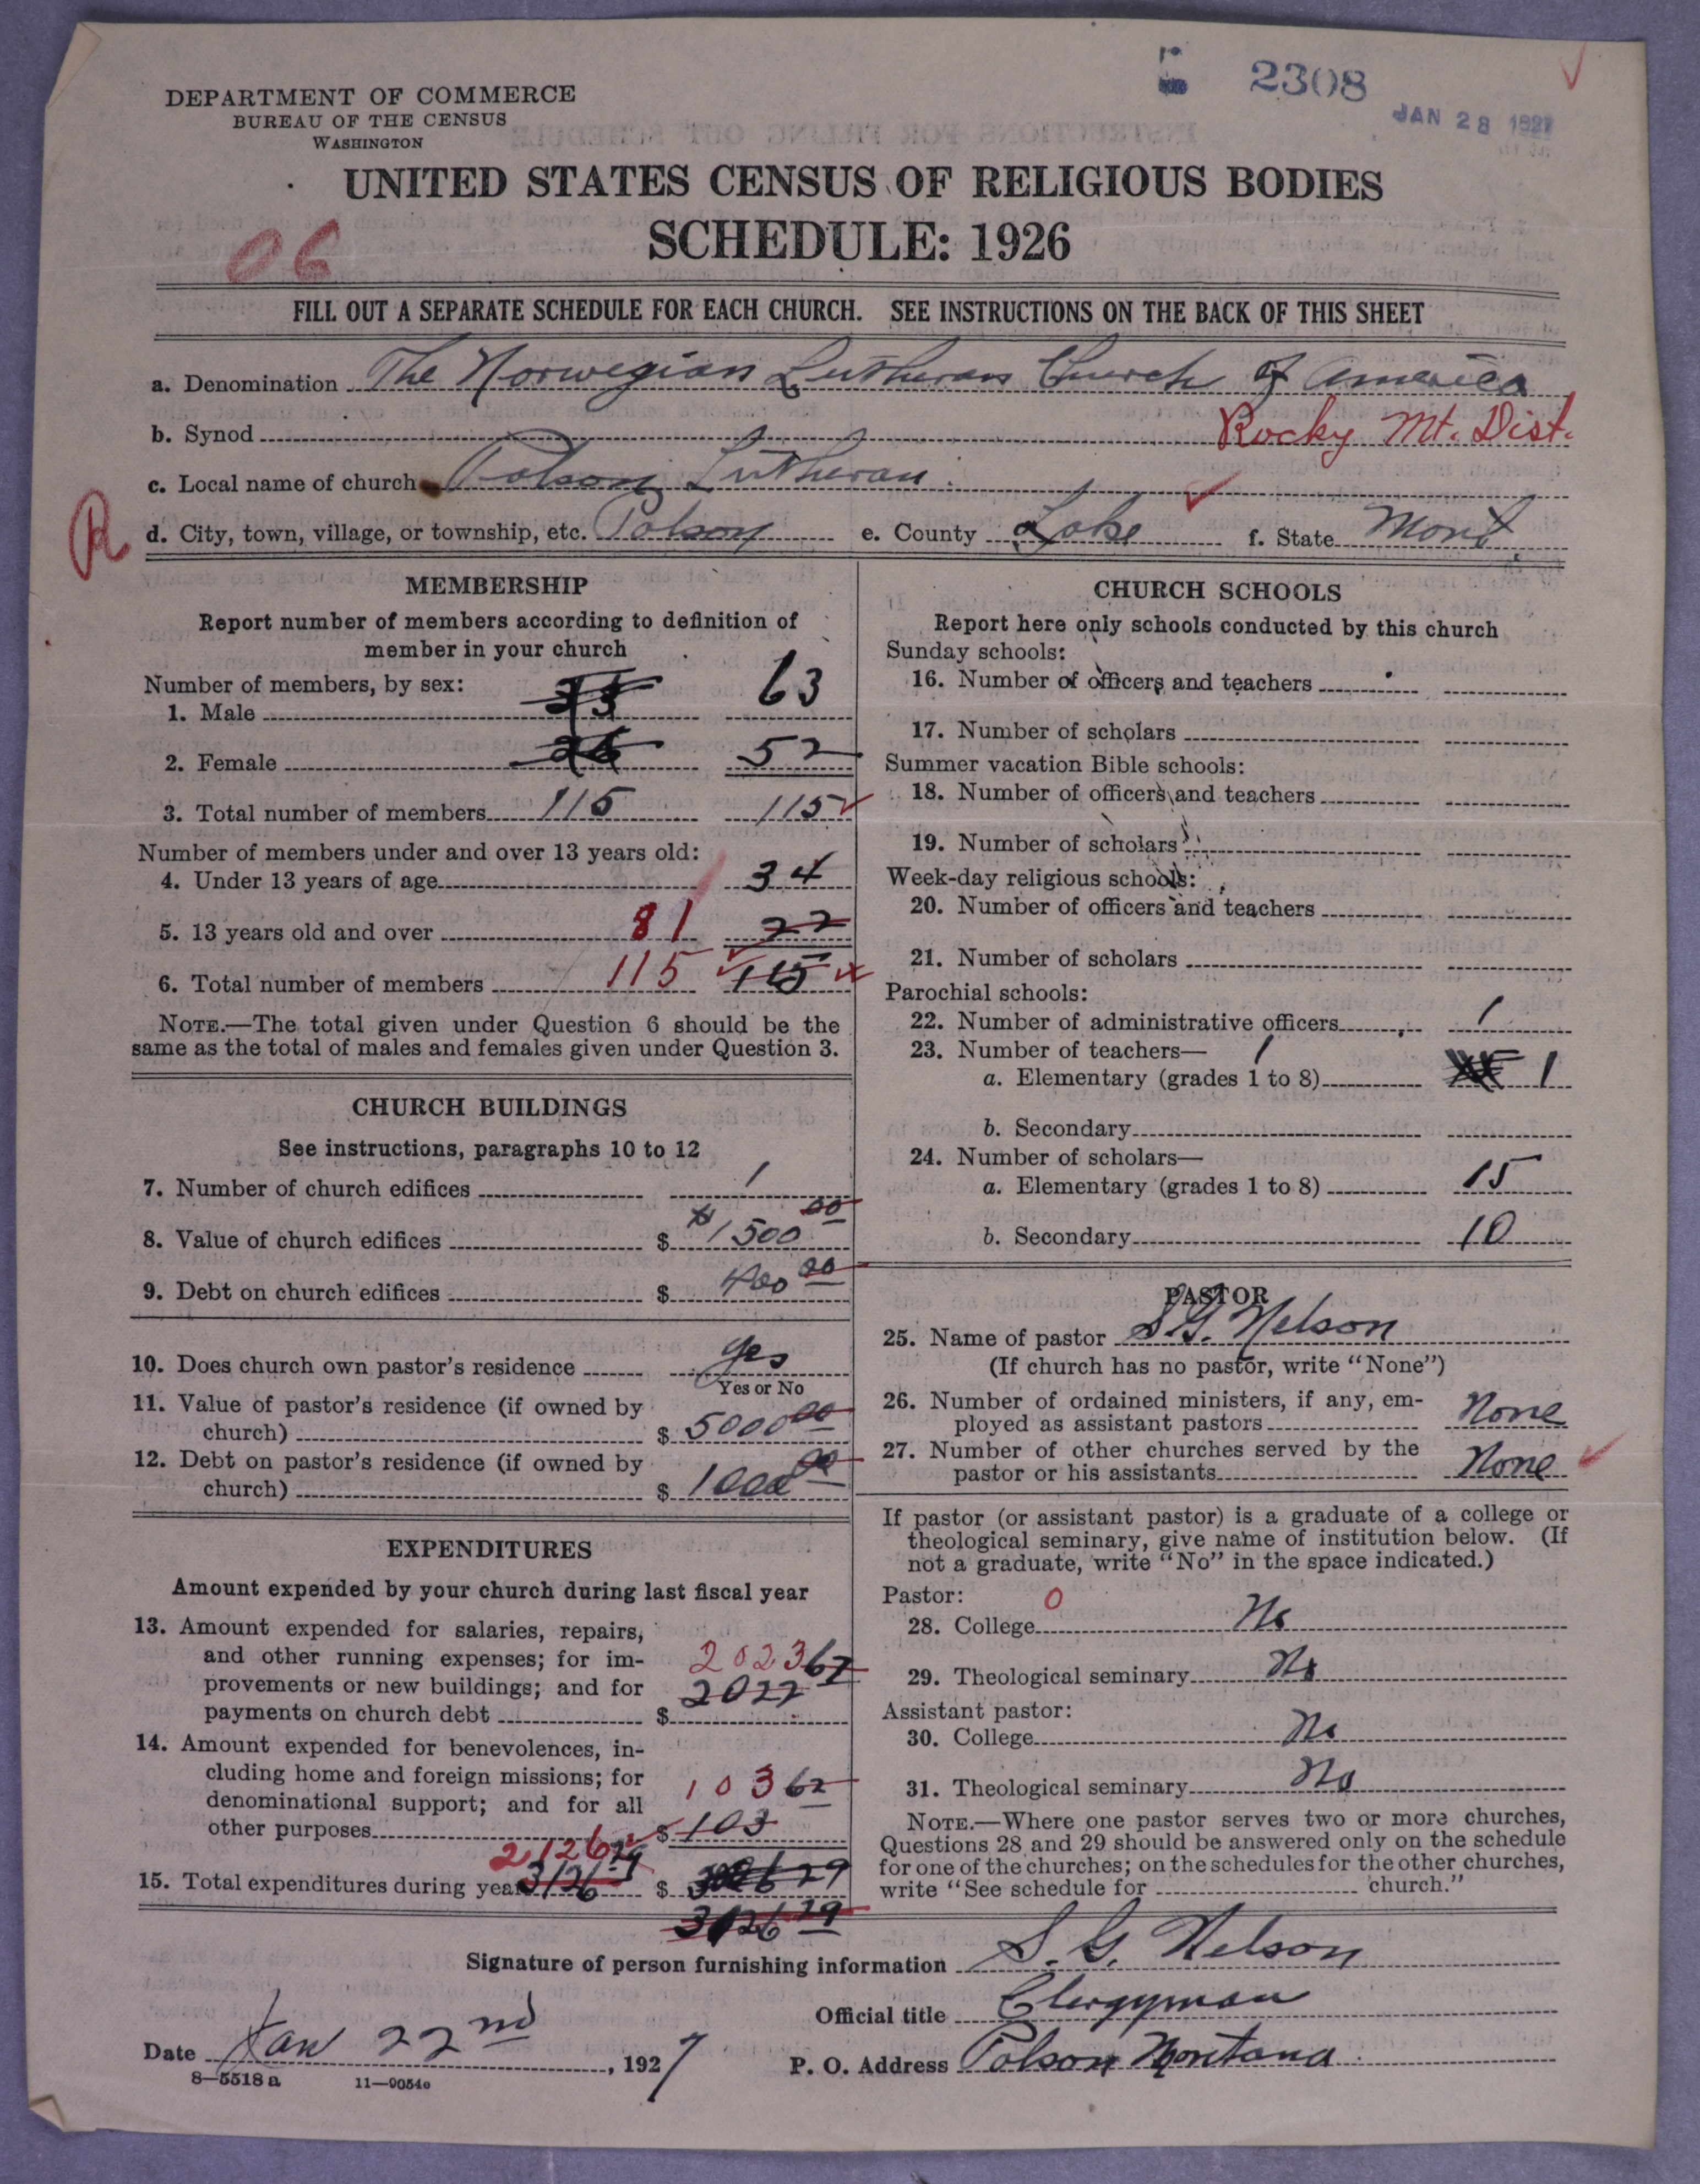 2308
JAN 28 1927
DEPARTMENT OF COMMERCE
BUREAU OF THE CENSUS
WASHINGTON
UNITED STATES CENSUS OF RELIGIOUS BODIES
SCHEDULE: 1926
06
FILL OUT A SEPARATE SCHEDULE FOR EACH CHURCH. SEE INSTRUCTIONS ON THE BACK OF THIS SHEET
a. Denomination The Norwegian Lutheran Church of America
b. Synod Rocky Mt. Dist.
c. Local name of church Polson Lutheran
R
d. City, town, village, or township, etc. Polson e. County Lake f. State Mont.
MEMBERSHIP
Report number of members according to definition of
member in your church
Number of members, by sex:
1. Male 63
2. Female 26 52
3. Total number of members 115 115
Number of members under and over 13 years old:
4. Under 13 years of age 34
5. 13 years old and over 81 22
6. Total number of members 115 115
NOTE.—The total given under Question 6 should be the
same as the total of males and females given under Question 3.
CHURCH BUILDINGS
See instructions, paragraphs 10 to 12
7. Number of church edifices 1
8. Value of church edifices $ 1500 00
9. Debt on church edifices $ 400 00
10. Does church own pastor's residence yes
Yes or No
11. Value of pastor's residence (if owned by
church) $ 5000 00
12. Debt on pastor's residence (if owned by
church) $ 1000 00
EXPENDITURES
Amount expended by your church during last fiscal year
13. Amount expended for salaries, repairs,
and other running expenses; for im-
provements or new buildings; and for
payments on church debt $ 2023 67
2022
14. Amount expended for benevolences, in-
cluding home and foreign missions; for
denominational support; and for all
other purposes $ 103 62
103
2126 29
15. Total expenditures during year 3126 29 $
3126 29
CHURCH SCHOOLS
Report here only schools conducted by this church
Sunday schools:
16. Number of officers and teachers
17. Number of scholars
Summer vacation Bible schools:
18. Number of officers and teachers
19. Number of scholars
Week-day religious schools:
20. Number of officers and teachers
21. Number of scholars
Parochial schools:
22. Number of administrative officers 1
23. Number of teachers— 1
a. Elementary (grades 1 to 8) 1
b. Secondary
24. Number of scholars—
a. Elementary (grades 1 to 8) 15
b. Secondary 10
PASTOR
25. Name of pastor S. G. Nelson
(If church has no pastor, write "None")
26. Number of ordained ministers, if any, em-
ployed as assistant pastors None
27. Number of other churches served by the
pastor or his assistants None
If pastor (or assistant pastor) is a graduate of a college or
theological seminary, give name of institution below. (If
not a graduate, write "No" in the space indicated.)
Pastor: 0
28. College No
29. Theological seminary No
Assistant pastor:
30. College No
31. Theological seminary No
NOTE.—Where one pastor serves two or more churches,
Questions 28 and 29 should be answered only on the schedule
for one of the churches; on the schedules for the other churches,
write "See schedule for church."
Signature of person furnishing information S. G. Nelson
Official title Clergyman
Date Jan 22nd, 1927 P. O. Address Polson Montana
8—5518a 11—9054c